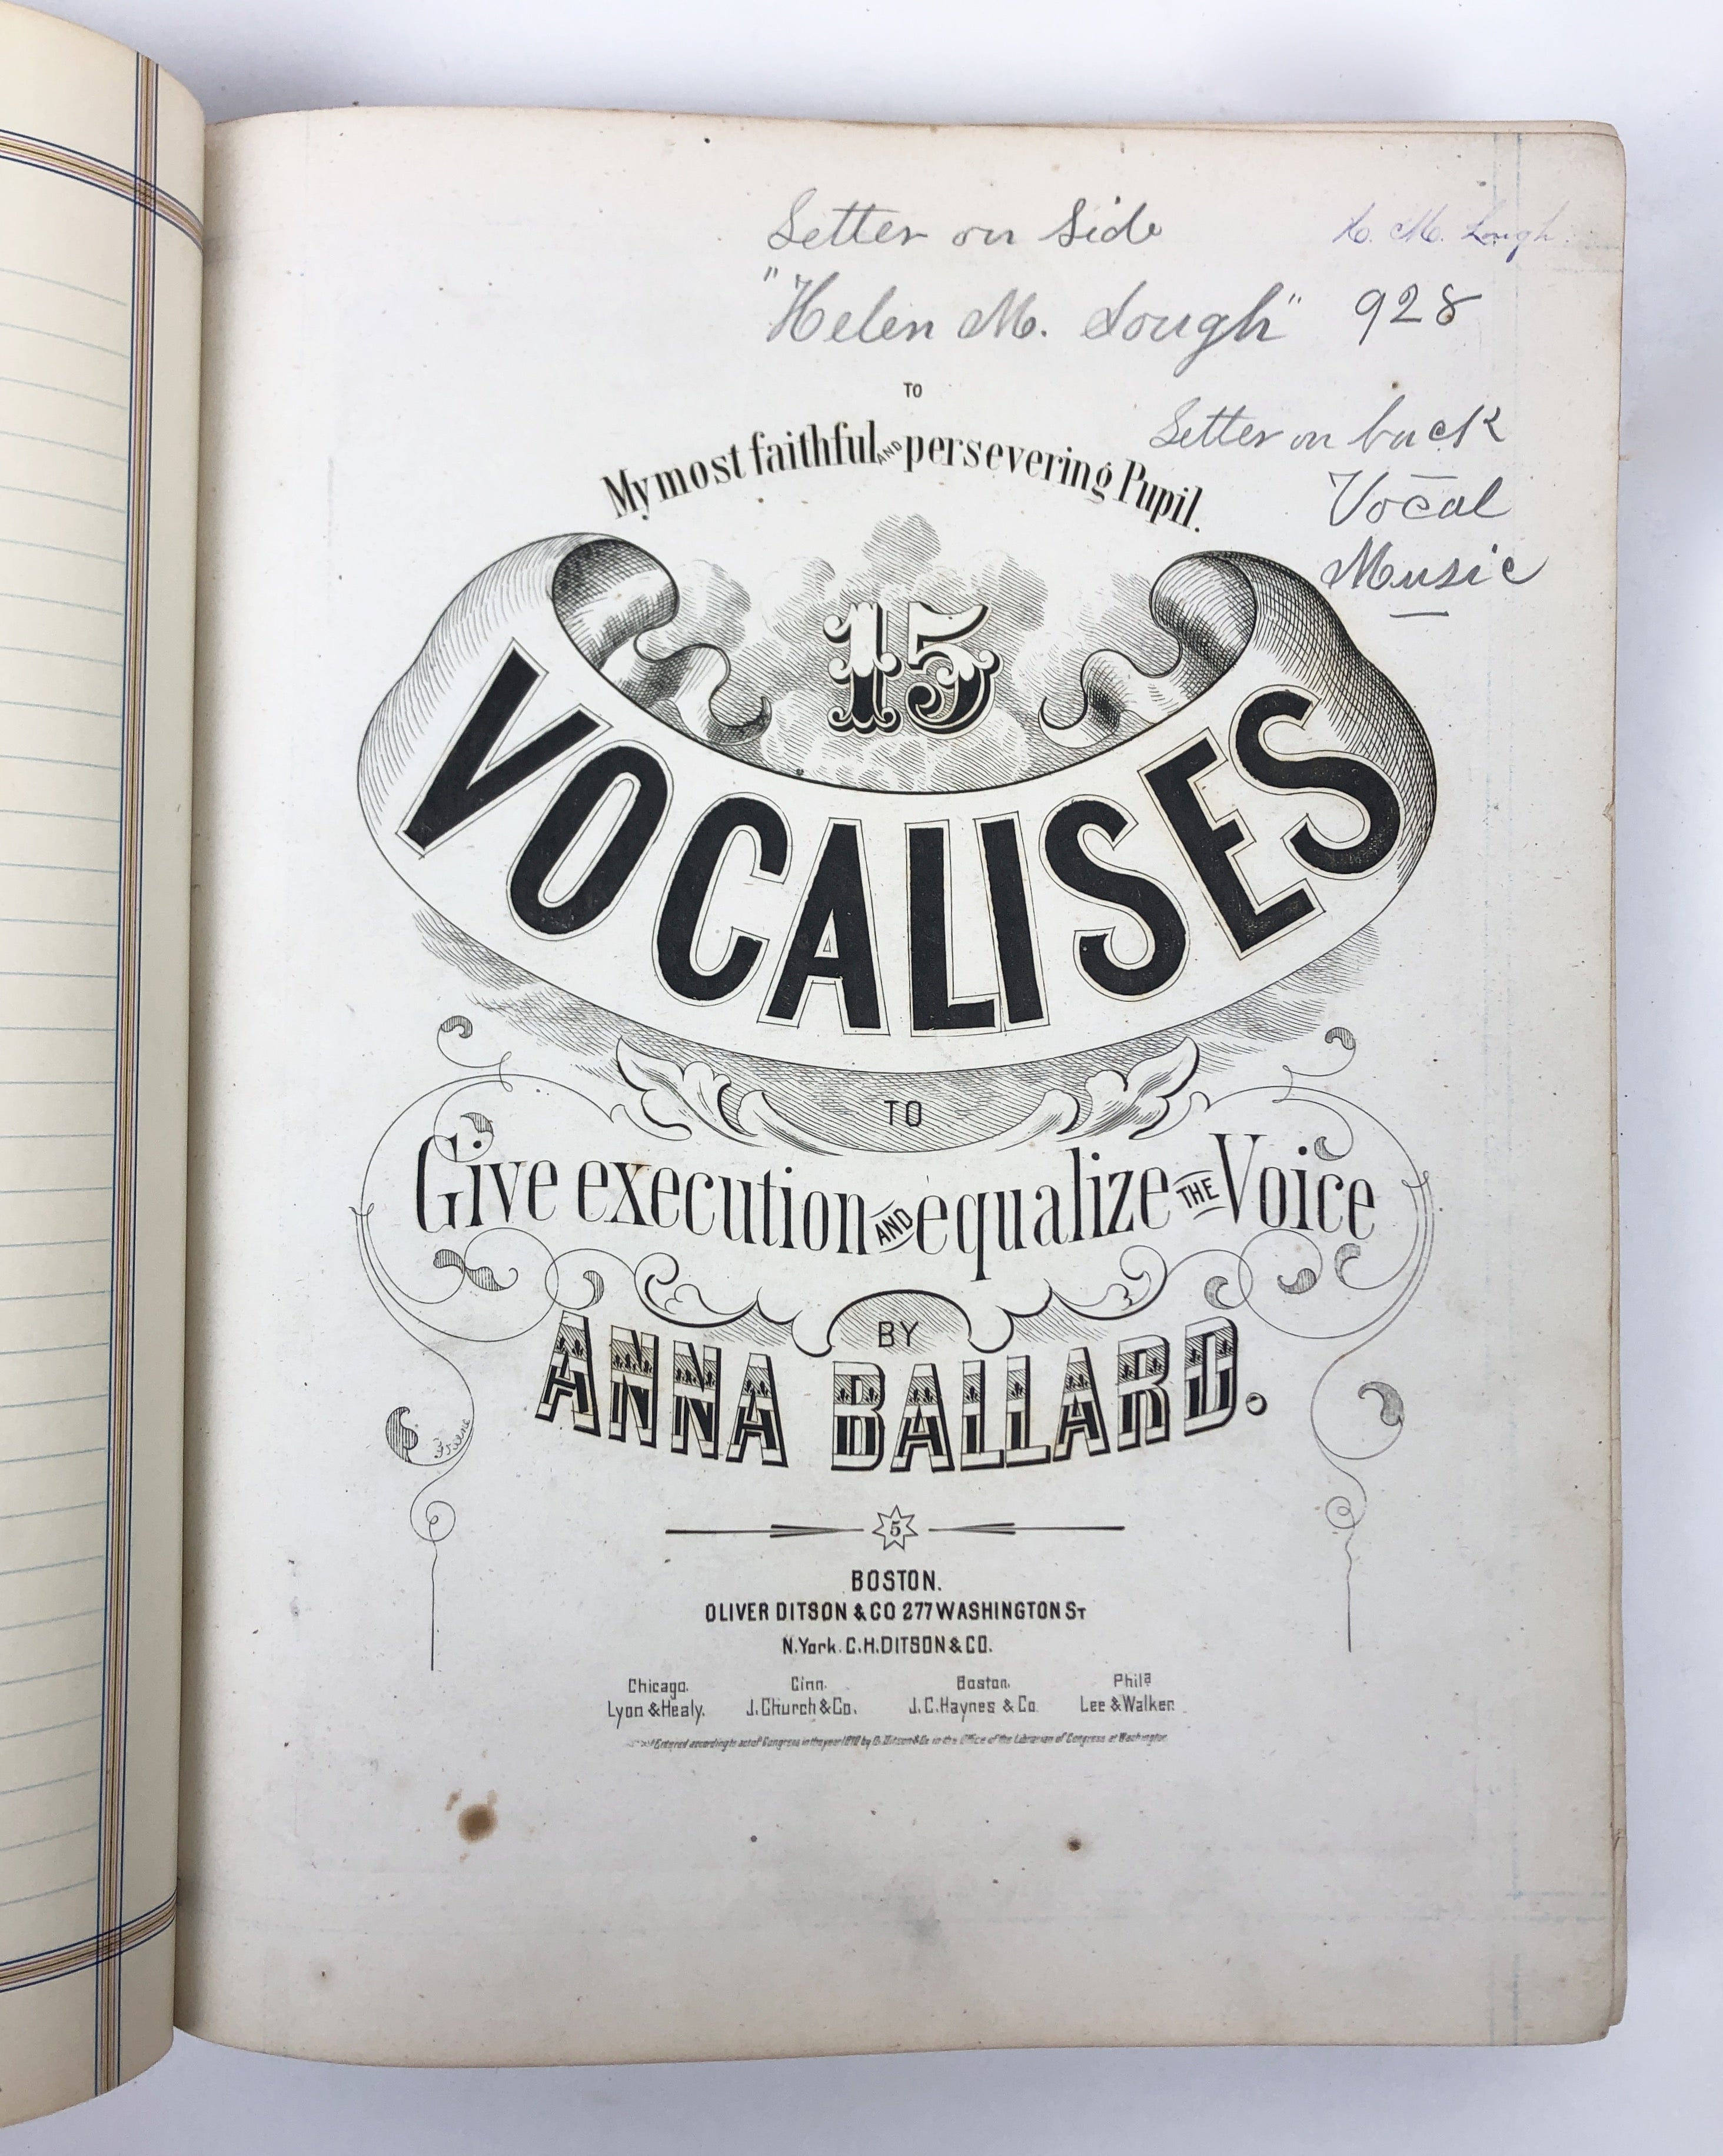 Letter on Side
H. M. Lough
"Helen M. Lough" 928
TO
My most faithful AND persevering Pupil.
Letter on back
Vocal
Music
15
VOCALISES
TO
Give execution AND equalize THE Voice
BY
ANNA BALLARD.
5
BOSTON.
OLIVER DITSON & CO 277 WASHINGTON ST
N.York. C.H.DITSON & CO.
Chicago. Cinn. Boston. Phila
Lyon & Healy. J.Church & Co. J.C.Haynes & Co. Lee & Walker.
Entered according to act of Congress in the year by O.Ditson & Co in the Office of the Librarian of Congress at Washington